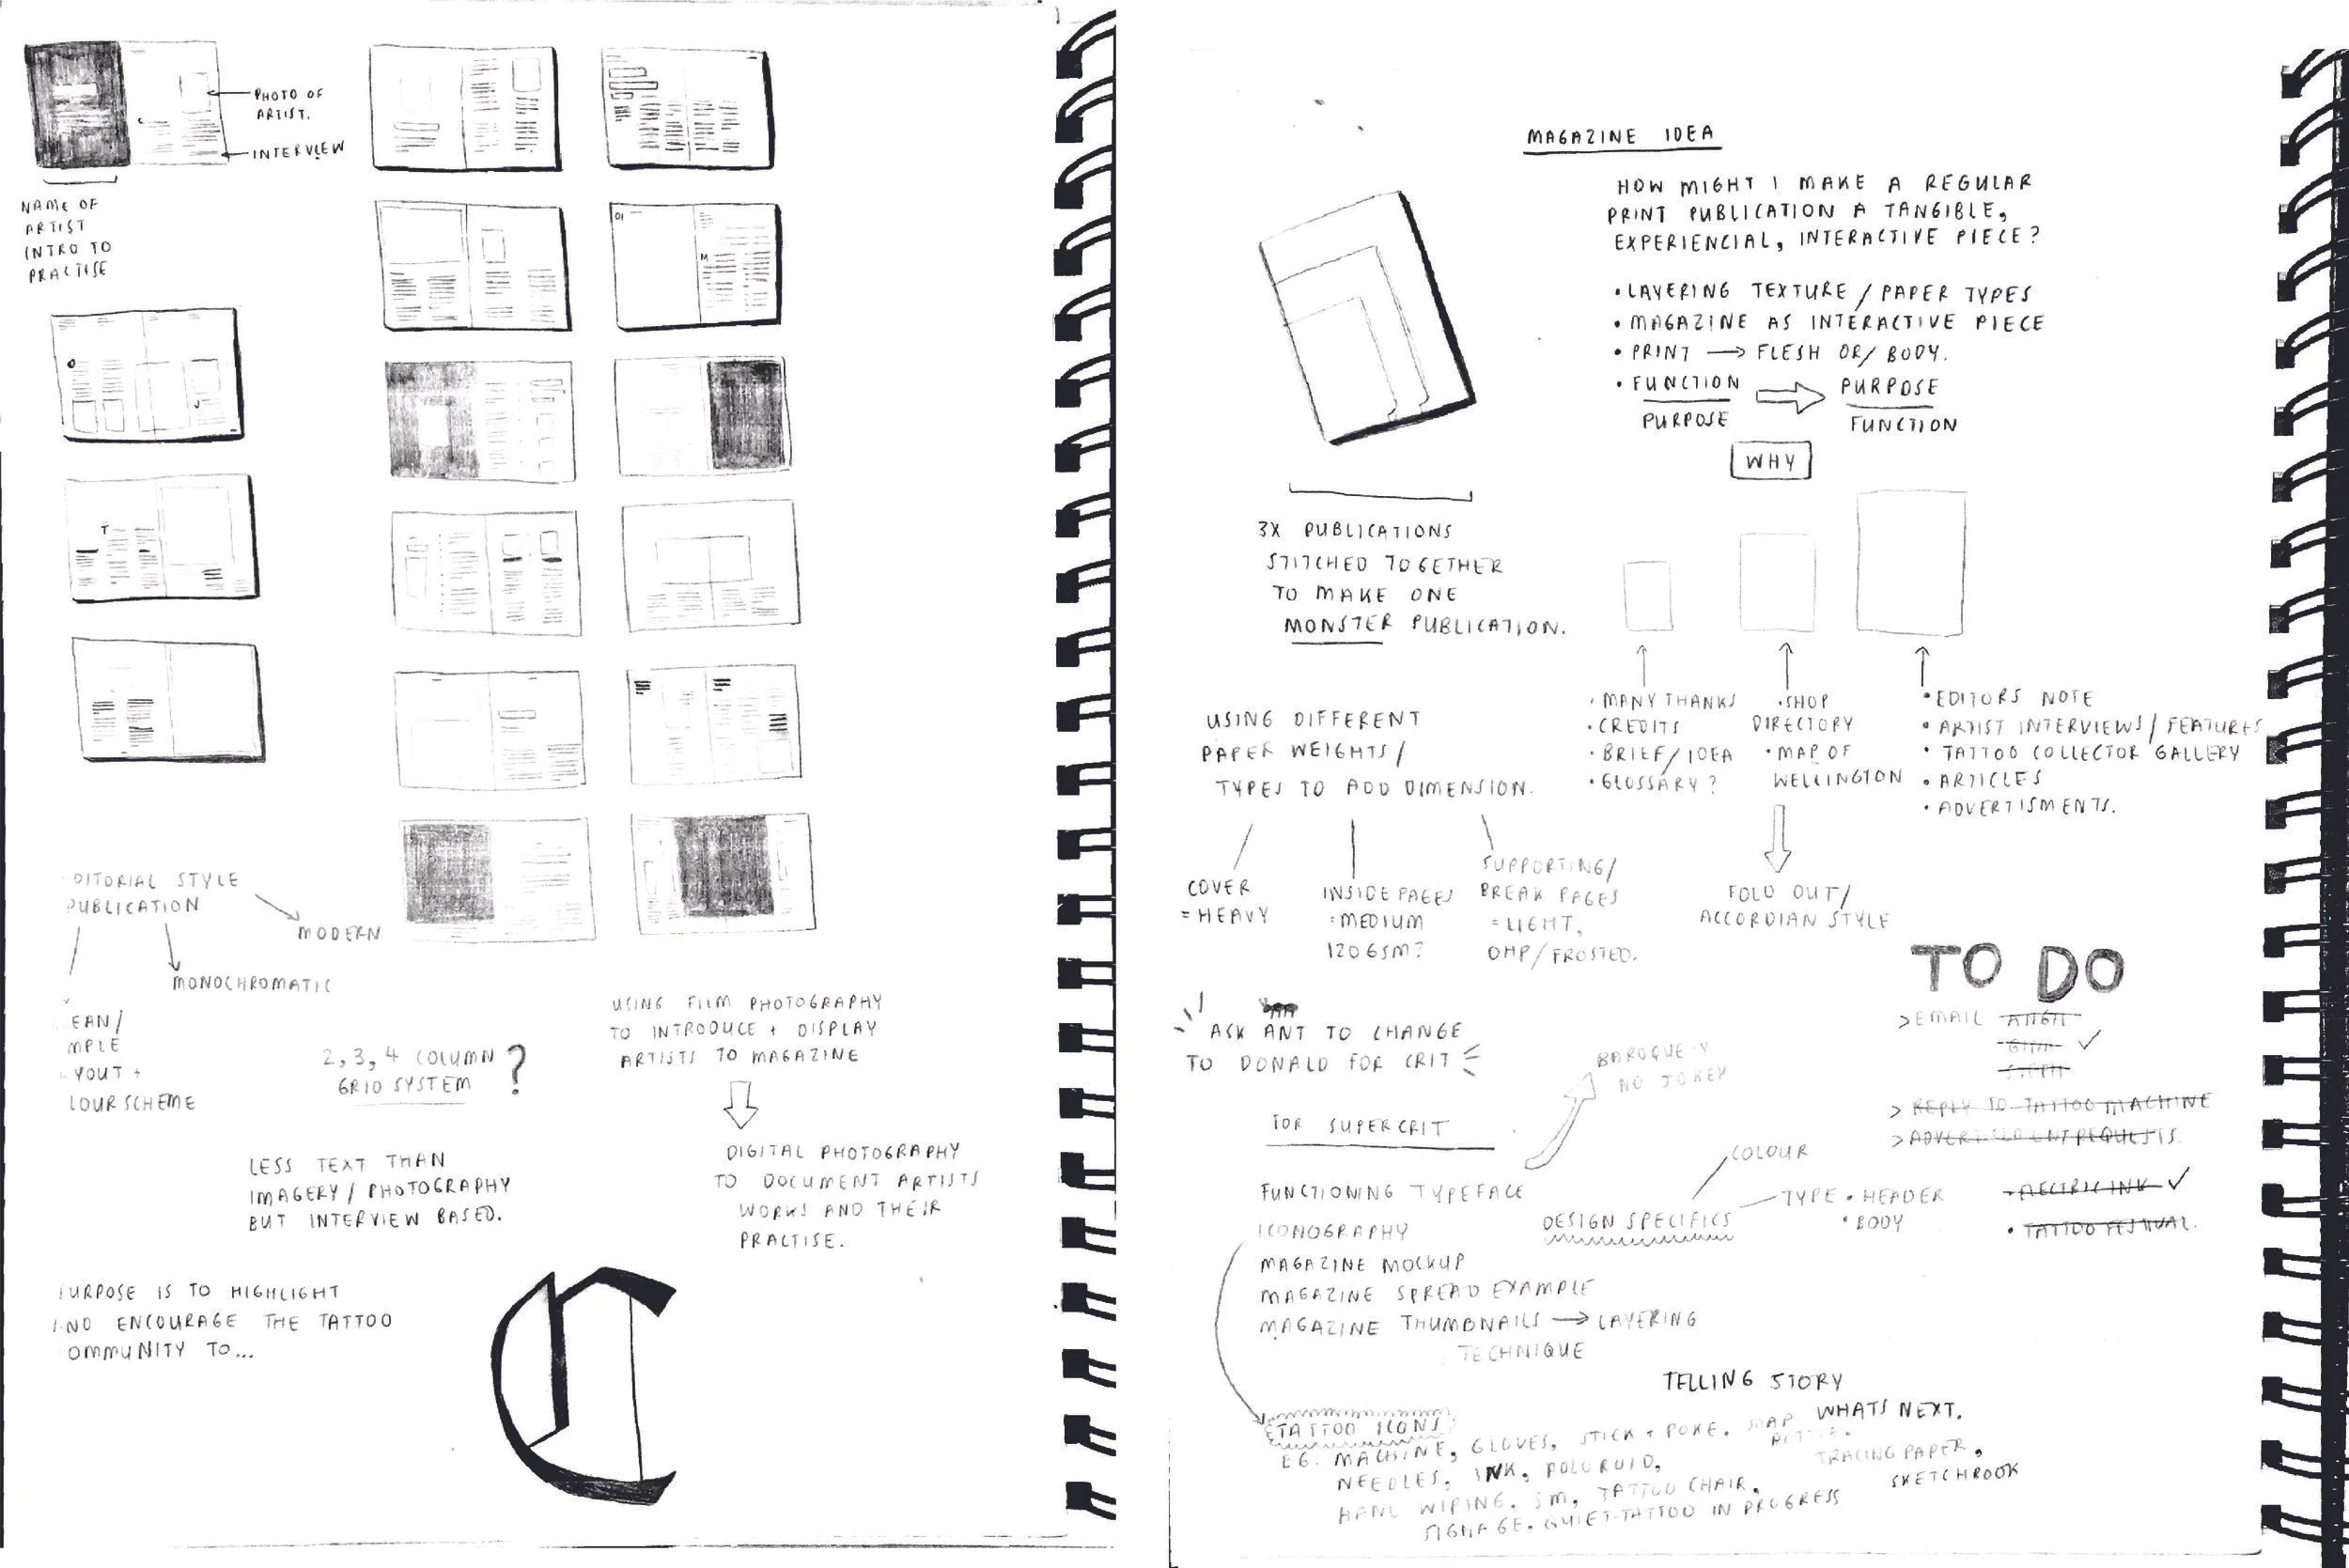 PHOTO OF
ARTIST.
INTERVIEW
NAME OF
ARTIST
INTRO TO
PRACTISE
01
M
T
DITORIAL STYLE
PUBLICATION
MODERN
MONOCHROMATIC
EAN/
MPLE
YOUT +
LOUR SCHEME
2, 3, 4 COLUMN
GRID SYSTEM ?
USING FILM PHOTOGRAPHY
TO INTRODUCE + DISPLAY
ARTISTS TO MAGAZINE
DIGITAL PHOTOGRAPHY
TO DOCUMENT ARTISTS
WORKS AND THEIR
PRACTISE.
LESS TEXT THAN
IMAGERY/PHOTOGRAPHY
BUT INTERVIEW BASED.
URPOSE IS TO HIGHLIGHT
AND ENCOURAGE THE TATTOO
OMMUNITY TO...
C
MAGAZINE IDEA
HOW MIGHT I MAKE A REGULAR
PRINT PUBLICATION A TANGIBLE,
EXPERIENCIAL, INTERACTIVE PIECE?
• LAYERING TEXTURE / PAPER TYPES
• MAGAZINE AS INTERACTIVE PIECE
• PRINT → FLESH OR/ BODY.
• FUNCTION ⇒ PURPOSE
PURPOSE FUNCTION
WHY
3X PUBLICATIONS
STITCHED TOGETHER
TO MAKE ONE
MONSTER PUBLICATION.
• MANY THANKS
• CREDITS
• BRIEF/IDEA
• GLOSSARY?
• SHOP
DIRECTORY
• MAP OF
WELLINGTON
• EDITORS NOTE
• ARTIST INTERVIEWS/FEATURES
• TATTOO COLLECTOR GALLERY
• ARTICLES
• ADVERTISMENTS.
FOLD OUT/
ACCORDIAN STYLE
USING DIFFERENT
PAPER WEIGHTS/
TYPES TO ADD DIMENSION.
COVER
= HEAVY
INSIDE PAGES
= MEDIUM
120 GSM?
SUPPORTING/
BREAK PAGES
= LIGHT,
OHP/FROSTED.
ASK ANT TO CHANGE
TO DONALD FOR CRIT
TO DO
> EMAIL
> REPLY TO TATTOO MACHINE
> ADVERTISEMENT REQUESTS.
• TATTOO FESTIVAL.
BAROQUE-Y
NO JOKEY
FOR SUPERCRIT
FUNCTIONING TYPEFACE
ICONOGRAPHY
MAGAZINE MOCKUP
MAGAZINE SPREAD EXAMPLE
MAGAZINE THUMBNAILS → LAYERING
TECHNIQUE
DESIGN SPECIFICS
COLOUR
TYPE • HEADER
• BODY
TATTOO ICONS
EG. MACHINE, GLOVES, STICK + POKE. SOAP
NEEDLES, INK, POLOROID,
HAND WIPING. SM, TATTOO CHAIR,
SIGNAGE. QUIET-TATTOO IN PROGRESS
TELLING STORY
WHATS NEXT.
TRACING PAPER,
SKETCHBOOK